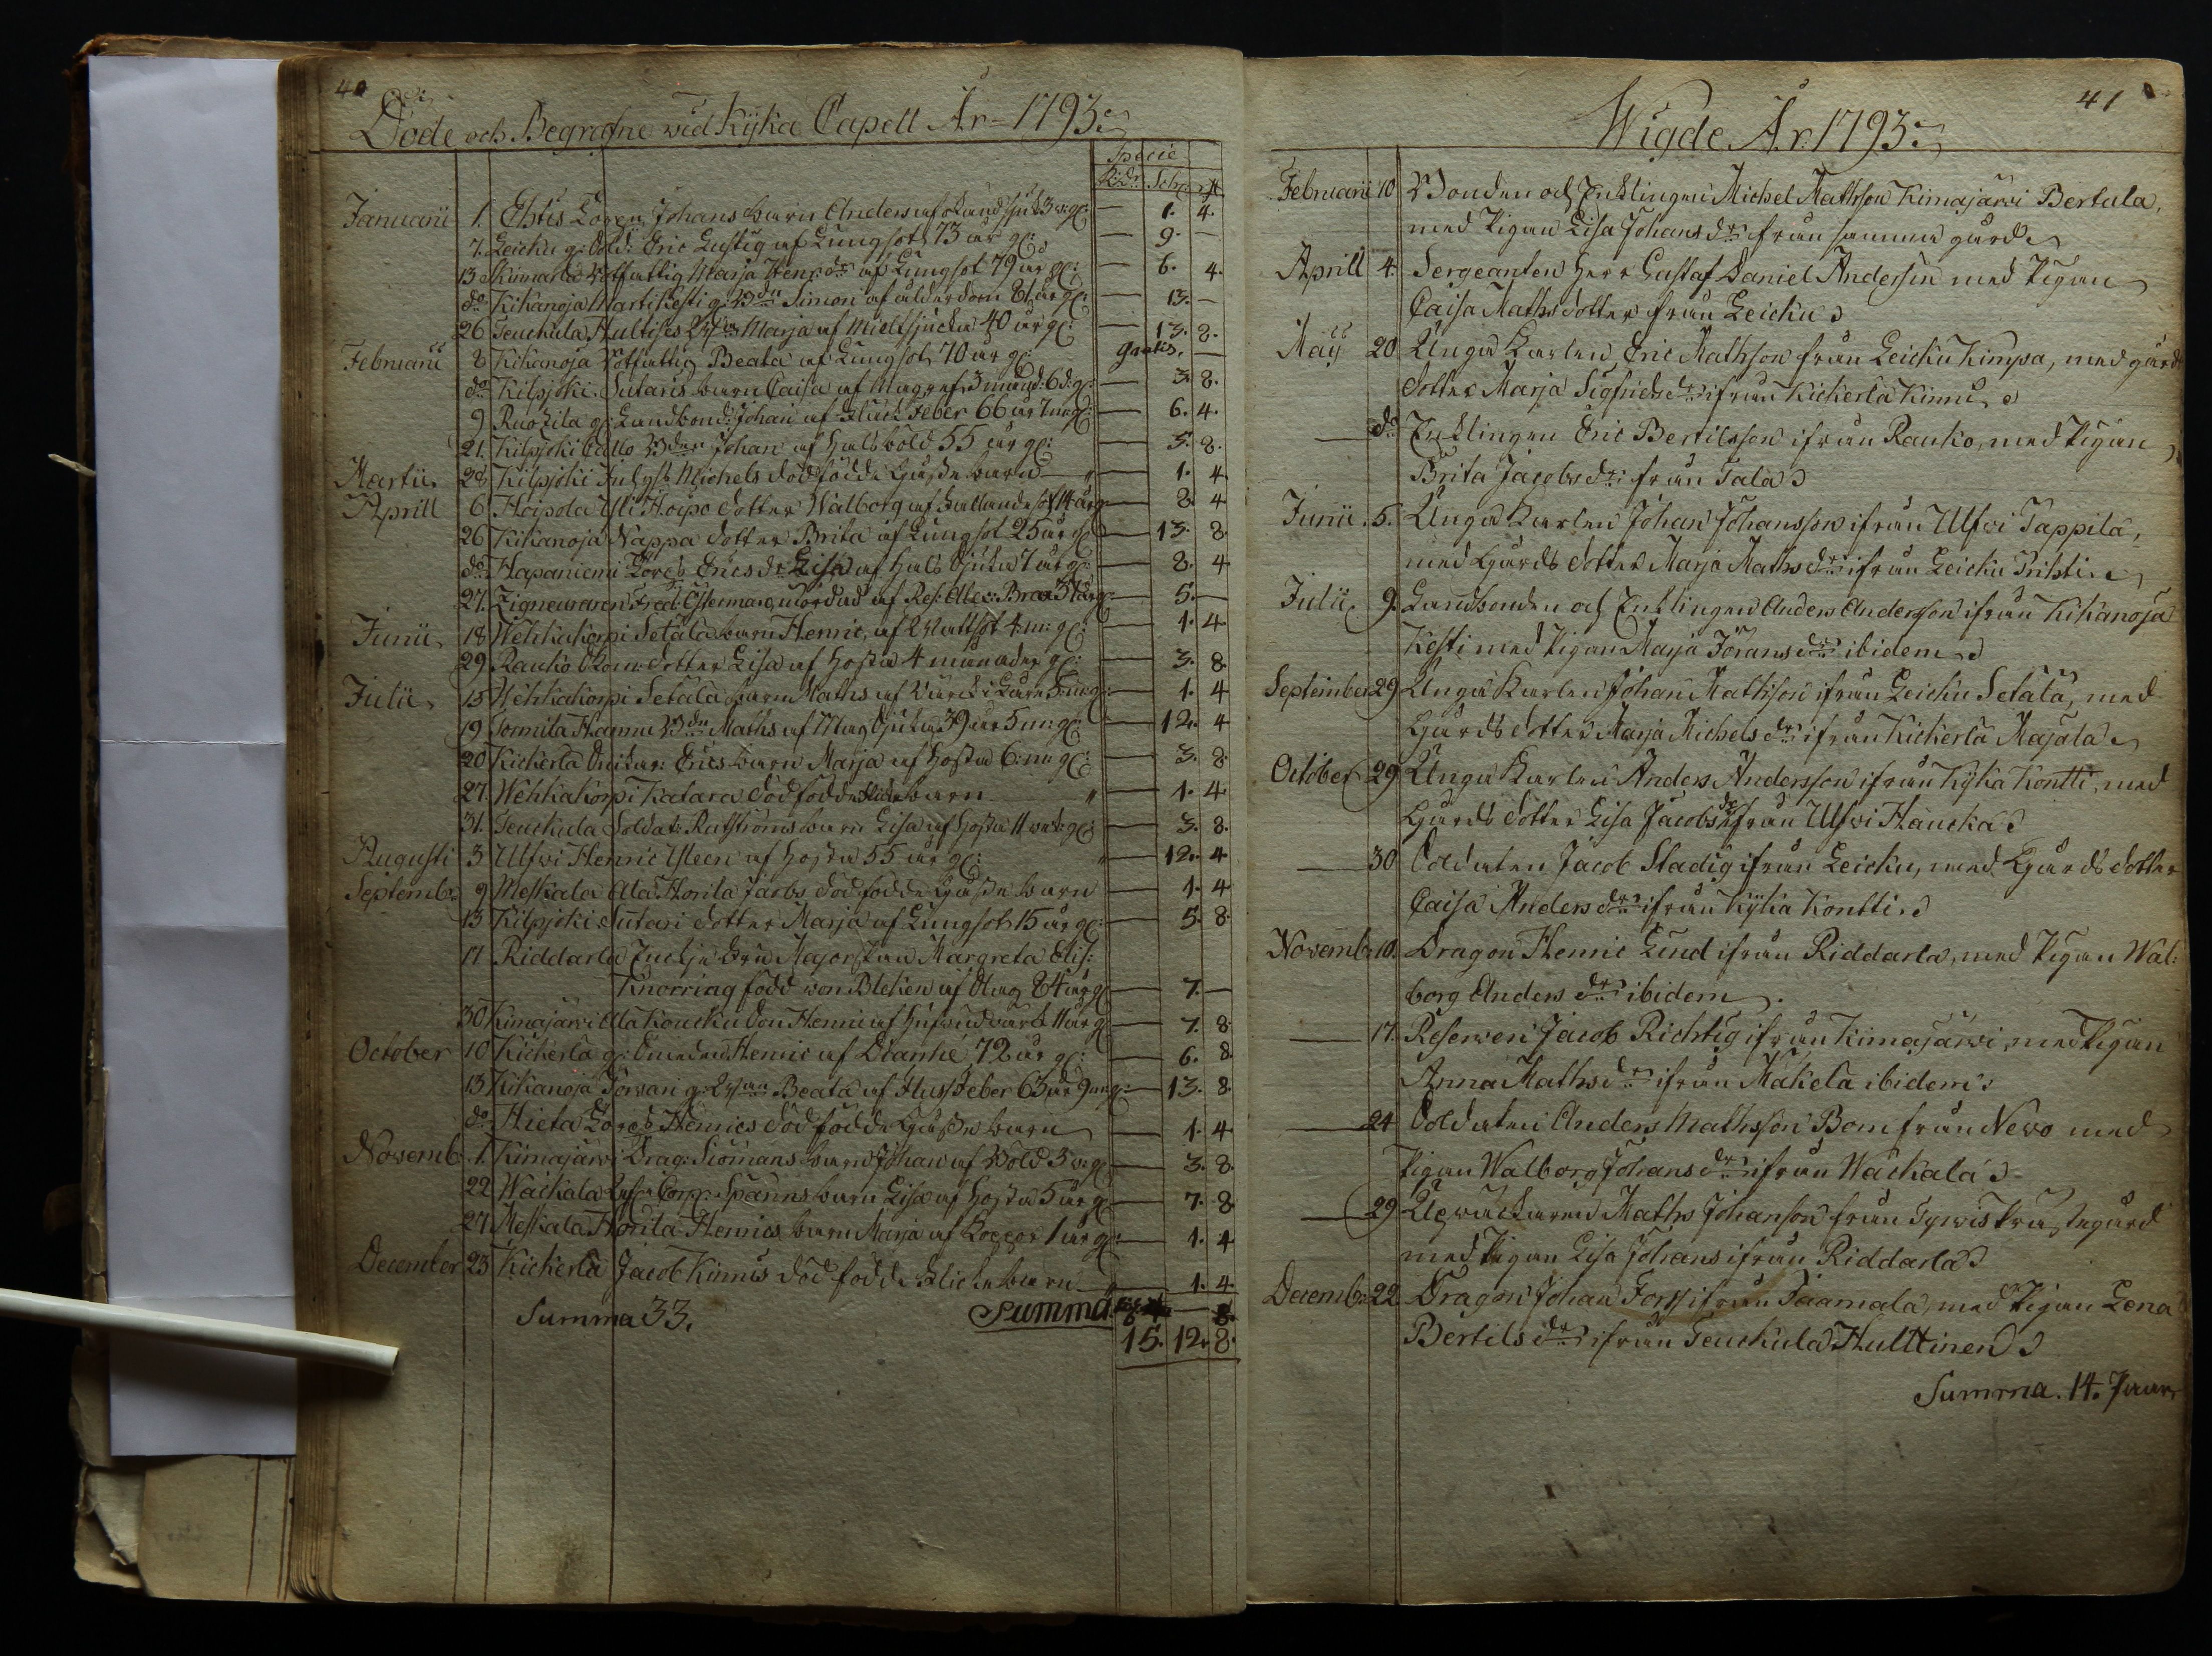 40
Döde och Begrafne wid Kyka Capell År 1793.
Specie
R:dr Sch: rst
Januarii 1. Ehtis Torp: Johans barn Anders af okänd sjuk: 3 v: gl: — 1. 4.
7. Leicku g: Sold: Eric Lustig af Lungsot 73 år gl: — 9. —
13 Kinnarla Rotfattig Marja Henr: dr af Lungsot 79 år gl: — 6. 4.
do Kikanoja Marti Kesti g: Bdn Simon af ålderdom 81 år gl: — 13. —
26 Teuckula, Hultises Marja af Mieltsjucka 40 år gl: — 13. 8.
Februarii 8 Kikanoja Rotfattig Beata af Lungsot 70 år gl: gratis. —
do Kilpjoki Sutaris barn Caisa af Magref 3 månd: 6 d: g: — 3. 8.
9 Ruohila g: Landbond: Johan af Fläck Feber 66 år 7 m: gl: — 6. 4.
21. Kilpjoki Callo Bdn Johan af halsböld 55 år gl: — 5. 8.
Martii 28 Kilpjoki Michels dödfödde Gåsse barn — 1. 4.
Aprill 6 Hoipola Yli Hoipo dotter Walborg af fallandesot 14 år g: — 8. 4
26 Kikanoja Nappa dotter Brita af Lungsot 25 år gl: — 13. 8.
do Hapaniemi Torp: Erics dr Lisa af hals sjuka 7 år g: — 8. 4.
27. Zigneuraren Fred: Österman, mördad af Ref: Alex: Brax 37 år g: — 5. —
Junii 18 Wehkakorpi Setälä barn Henric, af Wattsot 4 m: gl: — 1. 4.
29 Rauko dotter Lisa af hosta 4 månader gl: — 3. 8.
Julii 15 Wehkakorpi Setälä barn Maths af Värck i Lårn 5 m: g: — 1. 4
19 Sonnila Hannu Bdn Maths af Mag Sjuka 39 år 5 m: gl: — 12. 4
20 Kickerla Erics barn Marja af hosta 6 m: gl: — 3. 8.
27. Wehkakorpi Katara dödfödde flicke barn — 1. 4.
31. Teuckula Soldat: Rutströms barn Lisa af hosta 11 veck: gl: — 3. 8.
Augusti 3 Ulfwi Henric Ysteen af hosta 55 år gl: — 12. 4
Septemb: 9 Meskala Ala Honila Jacobs dödfödde Gåsse barn — 1. 4
13 Kilpjoki Sutari dotter Marja af Lungsot 15 år gl: — 5. 8.
17 Riddarla Enckje Fru Majorskan Margreta Elis:
Knorring född von Bleken af Slag 84 år g — 7. —
30 Kimajärwi Ala Koucku Son Henric af hufvudvärk 11 år g — 7. 8.
October 10 Kickerla g: Henric af Diarrhé 72 år gl: — 6. 8
13 Kikanoja Torwari g: Beata af Huss Feber 63 år 9 m: g: — 13. 8.
do Hieta Torp: Henrics dödfödde Gåsse barn — 1. 4
Novemb. 1. Kimajärwi Drag: Siömans barn Johan af Böld 3 v: g: — 3. 8.
22 Wäckala Corp: Spänns barn Lisa af hosta 5 år g: — 7. 8
27. Meskala Honila Henrics barn Marja af Kopper 1 år g: — 1. 4
December 23 Kickerla Jacob Kinnis dödfödde flicke barn — 1. 4.
Summa 33. Summa
15. 12. 8.
41
Wigde År 1793.
Februarii 10 Bonden och Encklingen Michel Mathson Kimajärwi Bertula,
med Pigan Lisa Johans dr ifrån samma gård.
Aprill 4. Sergeanten Herr Gustaf Daniel Andersin med Pigan
Caisa Maths dotter från Leicku.
Maij 20 Unga Karlen Eric Mathson från Leicku Kimpa, med gårds
dotter Marja Sigfrids dr ifrån Kickerla Kinni.
— do Encklingen Eric Bertilsson ifrån Rauko, med Pigan
Brita Jacobs dr ifrån Tala.
Junii 5. Unga Karlen Johan Johansson ifrån Ulfwi Tappila,
med Gårds dotter Marja Maths dr ifrån Leicku Prihti.
Julii 9. Landbonden och Encklingen Anders Andersson ifrån Kikanoja
Kesti med Pigan Marja Jörans dr ibidem.
September 29 Unga Karlen Johan Mathson ifrån Leicku Setälä, med
Gårds dotter Marja Michels dr ifrån Kickerla Majala.
October 29 Unga Karlen Anders Andersson ifrån Kyka Kontti, med
Gårds dotter Lisa Jacobs dr ifrån Ulfwi Haucka.
— 30 Soldaten Jacob Stadig ifrån Leicku, med Gårds dotter
Caisa Anders dr ifrån Kyka Kontti.
Novemb: 10. Dragon Henric Lind ifrån Riddarla, med Pigan Wal:
borg Anders dr ibidem.
— 17. Reserven Jacob Richtig ifrån Kimajärwi, med Pigan
Anna Maths dr ifrån Mäkelä ibidem.
— 24 Soldaten Anders Mathsson Bom från Nevo med
Pigan Walborg Johans dr ifrån Wäckala.
— 29 Maths Johanson från Tyrwis Prästegård
med Pigan Lisa Johans ifrån Riddarla.
Decemb: 22 Dragon Johan Forss ifrån Taamala, med Pigan Lena
Bertils dr ifrån Teuckula Hulttinen.
Summa. 14. Paar